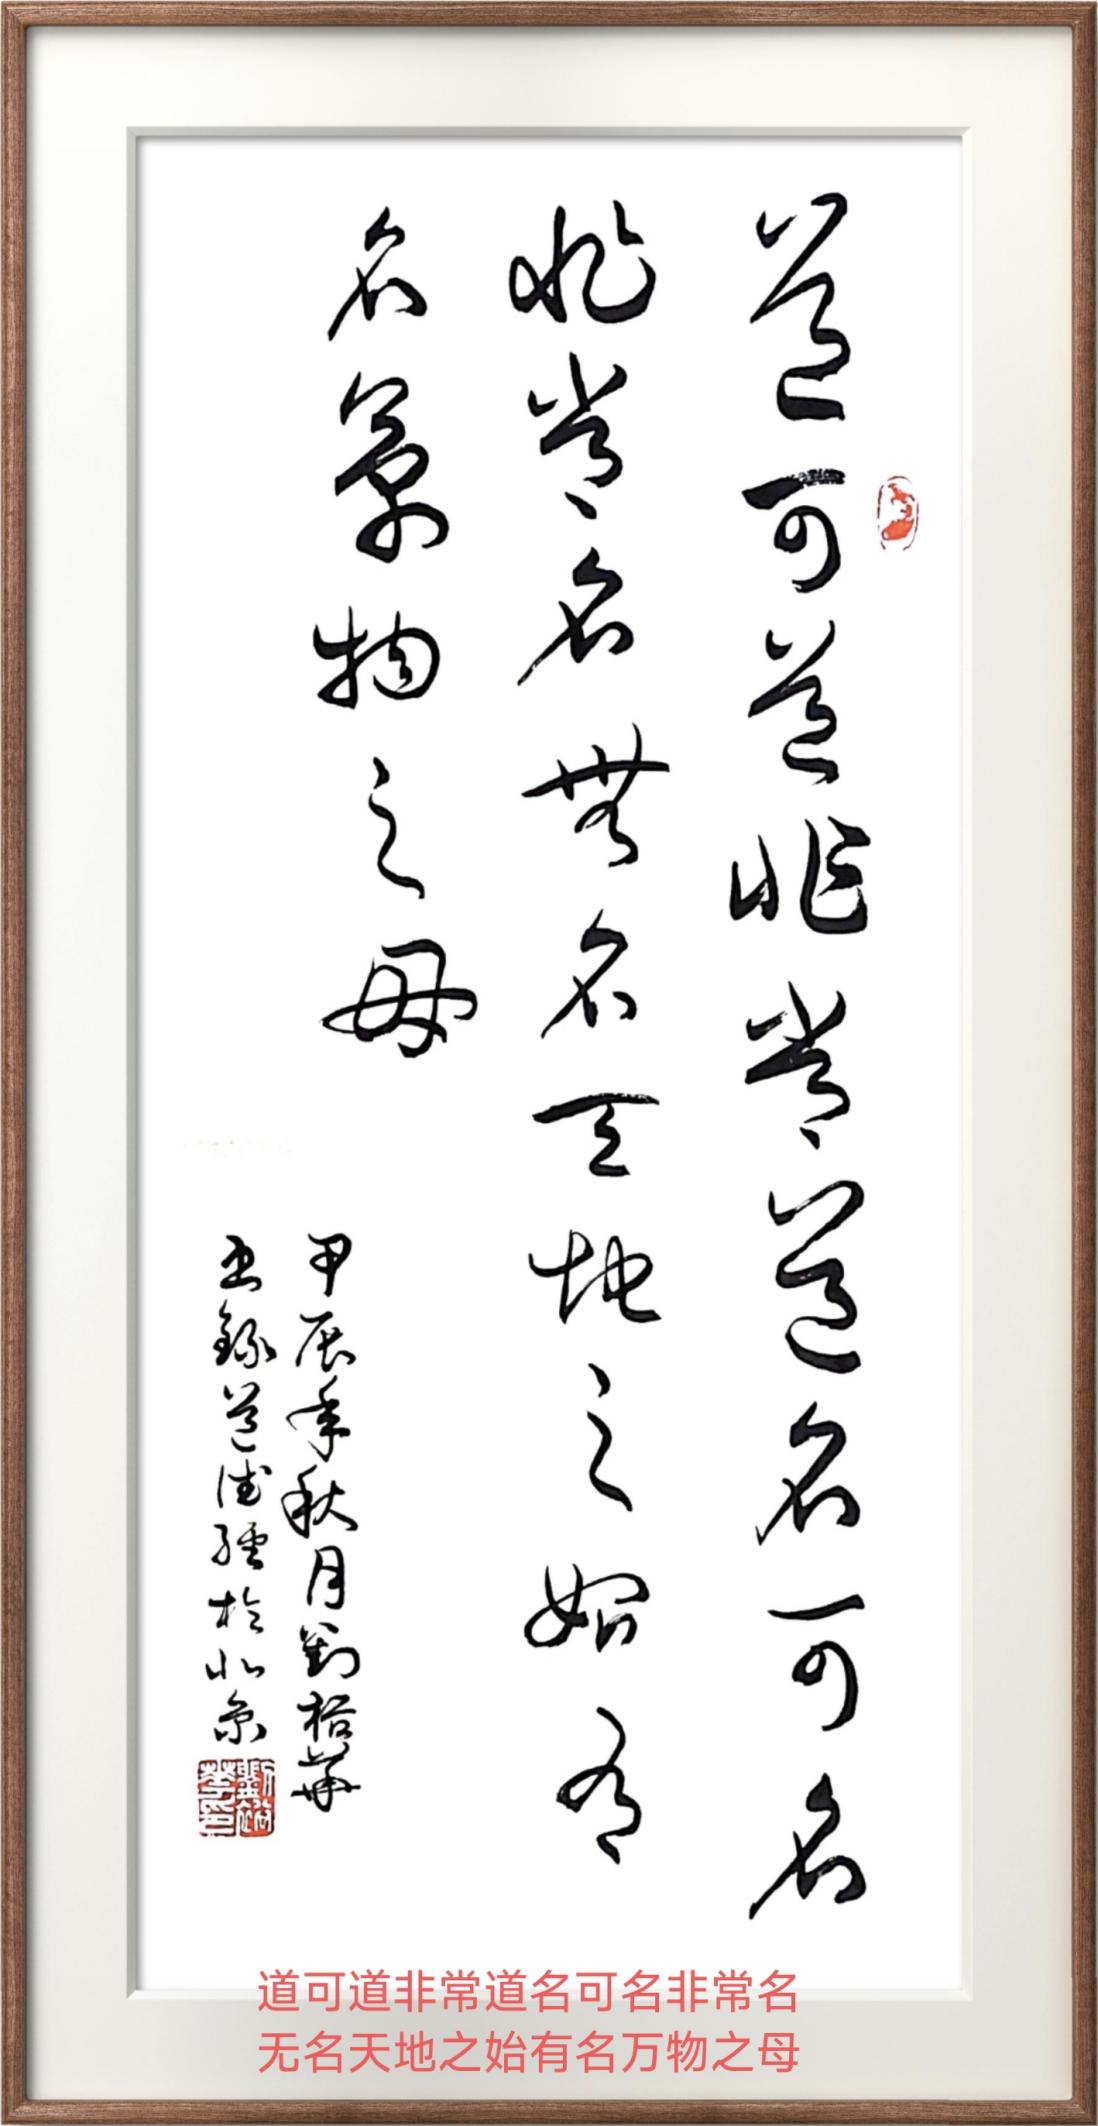 道可道非常道名可名
非常名無名天地之始有
名萬物之母
甲辰年秋月劉裕華
書錄道德經於北京
道可道非常道名可名非常名
无名天地之始有名万物之母